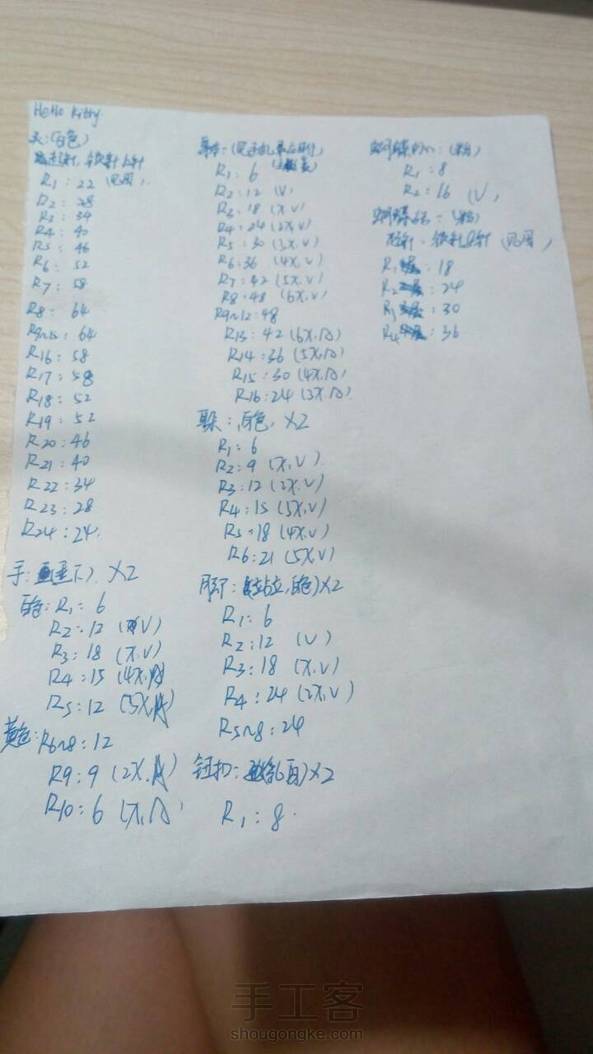 Hello Kitty
头:(白色)
R1:22 (见图)
R2:28
R3:34
R4:40
R5:46
R6:52
R7:58
R8:64
R9~15:64
R16:58
R17:58
R18:52
R19:52
R20:46
R21:40
R22:34
R23:28
R24:24
手: X2
白色:R1:6
R2:12 (V)
R3:18 (X.V)
R4:15 (4X.A)
R5:12 (3X.A)
黄色:R6~8:12
R9:9 (2X.A)
R10:6 (X.A)
R1:6
R2:12 (V)
R3:18 (X.V)
R4:24 (2X.V)
R5:30 (3X.V)
R6:36 (4X.V)
R7:42 (5X.V)
R8:48 (6X.V)
R9~12:48
R13:42 (6X.A)
R14:36 (5X.A)
R15:30 (4X.A)
R16:24 (3X.A)
白色, X2
R1:6
R2:9 (X.V)
R3:12 (2X.V)
R4:15 (3X.V)
R5:18 (4X.V)
R6:21 (5X.V)
脚: 白色)X2
R1:6
R2:12 (V)
R3:18 (X.V)
R4:24 (2X.V)
R5~8:24
钮扣: X2
R1:8
蝴蝶中心:(粉)
R1:8
R2:16 (V)
蝴蝶结:(粉)
(见图)
R1:18
R2:24
R3:30
R4:36
手工客
shougongke.com